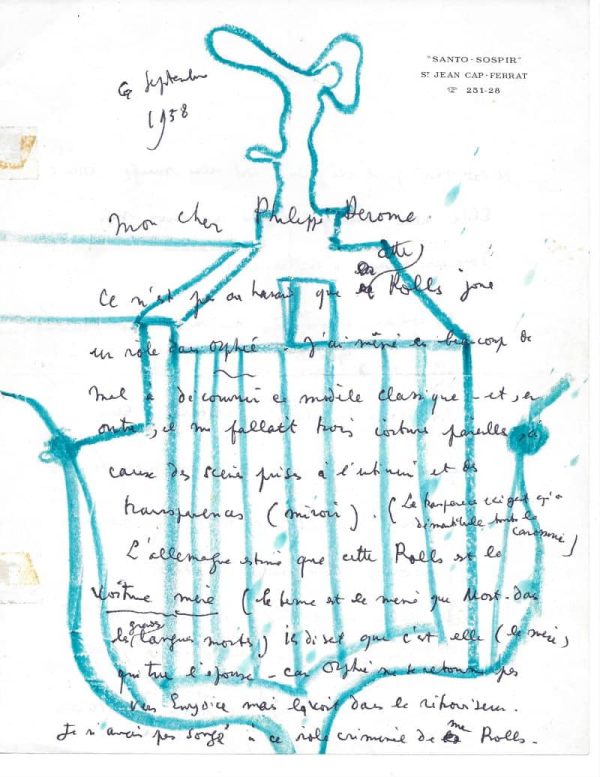 "SANTO-SOSPIR"
ST JEAN CAP-FERRAT
251-28
Septembre
1958
Mon cher Philippe Derome.
Ce n'est pas au hasard que cette Rolls joue
un rôle dans Orphée. J'ai même eu beaucoup de
mal à découvrir ce modèle classique - et, en
outre, il me fallait trois voitures pareilles, à
cause des scènes prises à l'intérieur et des
transparences (miroir). (La transparence exigeant qu'on
démantibule toute la
carosserie)
L'allemagne estime que cette Rolls est la
voiture mère (le terme est le même que Mort - dans
les langues mortes) Ils disent que c'est elle (la mère)
qui tue l'épouse - car Orphée ne se retourne pas
vers Eurydice mais la voit dans le rétroviseur.
Je n'avais pas songé à ce rôle criminel de ma Rolls.